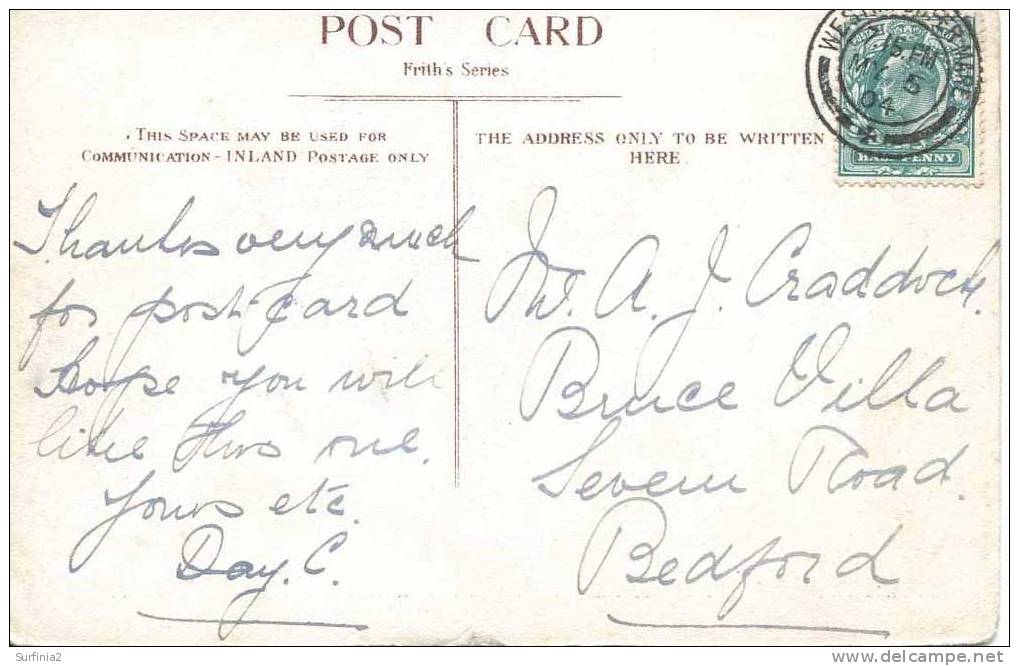 POST CARD
Frith's Series
THIS SPACE MAY BE USED FOR
COMMUNICATION - INLAND POSTAGE ONLY
THE ADDRESS ONLY TO BE WRITTEN
HERE
Thanks very much
for post card
hope you will
like this one.
Yours etc.
Day. C.
Mr. A. J. Craddock
Bruce Villa
Severn Road.
Bedford
15. PM
MY 5
04
HALFPENNY
Surfinia2